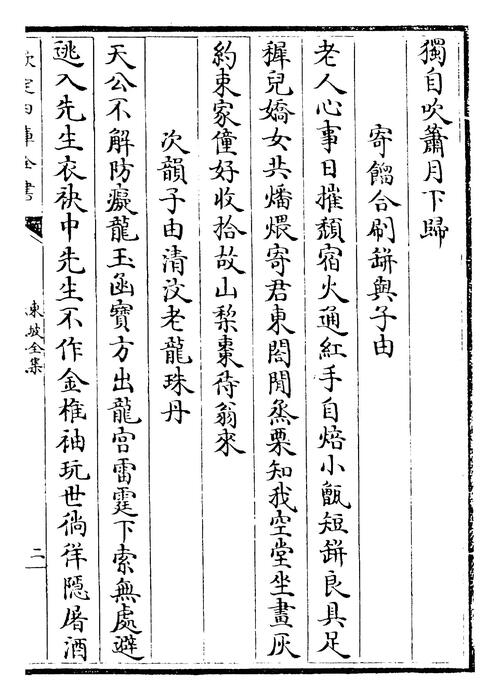 獨自吹簫月下歸
寄餾合刷缾與子由
老人心事日摧頹宿火通紅手自焙小甑短缾良具足
穉兒嬌女共燔煨寄君東閤閒烝栗知我空堂坐畫灰
約束家僮好收拾故山梨棗待翁來
次韻子由清汶老龍珠丹
天公不解防癡龍玉函寶方出龍宫雷霆下索無處避
逃入先生衣袂中先生不作金椎袖玩世徜徉隱屠酒
欽定四庫全書
東坡全集
二